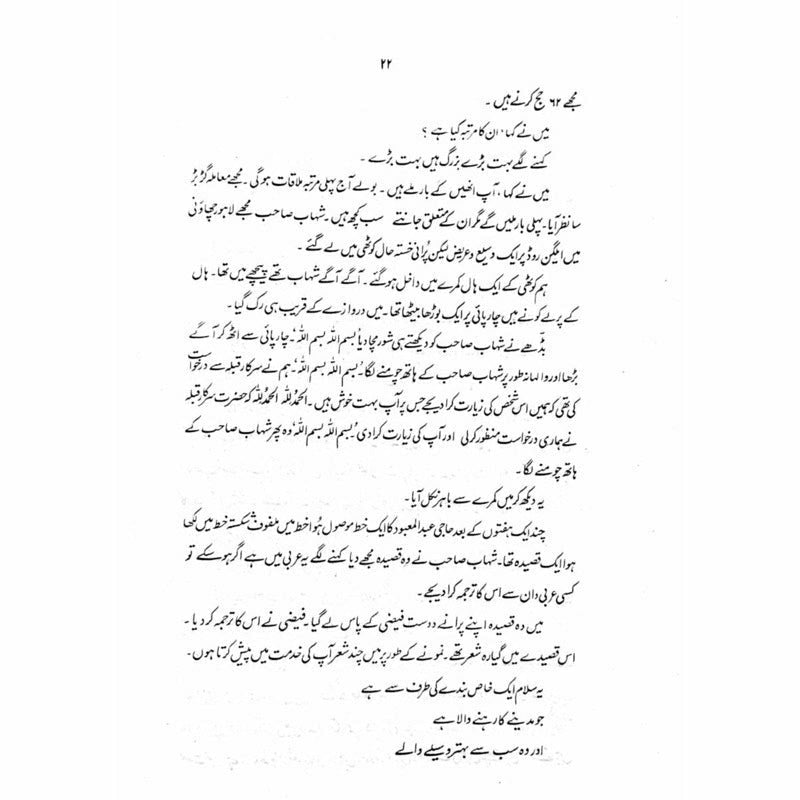 ۲۲
مجھے ۶۲ حج کرنے ہیں ۔
میں نے کہا ، ان کا مرتبہ کیا ہے ؟
کہنے لگے بہت بڑے بزرگ ہیں بہت بڑے ۔
میں نے کہا ، آپ انھیں کے بار ملے ہیں ۔ بولے آج پہلی مرتبہ ملاقات ہوگی ۔ مجھے معاملہ گڑبڑ
سا نظر آیا۔ پہلی بار ملیں گے مگر ان کے متعلق جانتے سب کچھ ہیں ۔ شہاب صاحب مجھے لاہور چھاؤنی
میں ایلگن روڈ پر ایک وسیع و عریض لیکن پُرانی خستہ حال کوٹھی میں لے گئے ۔
ہم کوٹھی کے ایک ہال کمرے میں داخل ہو گئے ۔ آگے آگے شہاب تھے پیچھے میں تھا ۔ ہال
کے پرلے کونے میں چارپائی پر ایک بوڑھا بیٹھا تھا۔ میں دروازے کے قریب ہی رک گیا ۔
بڈھے نے شہاب صاحب کو دیکھتے ہی شور مچا دیا ’بسم اللہ بسم اللہ‘۔ چارپائی سے اٹھ کر آگے
بڑھا اور والہانہ طور پر شہاب صاحب کے ہاتھ چومنے لگا۔ ’بسم اللہ بسم اللہ‘۔ ہم نے سرکار قبلہ سے درخواست
کی تھی کہ ہمیں اس شخص کی زیارت کرا دیجے جس پر آپ بہت خوش ہیں ۔ الحمدُللہ الحمدُللہ کہ حضرت سرکار قبلہ
نے ہماری درخواست منظور کرلی اور آپ کی زیارت کرا دی ’بسم اللہ بسم اللہ‘ وہ پھر شہاب صاحب کے
ہاتھ چومنے لگا ۔
یہ دیکھ کر میں کمرے سے باہر نکل آیا ۔
چند ایک ہفتوں کے بعد حاجی عبدالمعبود کا ایک خط موصول ہُوا خط میں ملفوف شکستہ خط میں لکھا
ہوا ایک قصیدہ تھا۔ شہاب صاحب نے وہ قصیدہ مجھے دیا کہنے لگے یہ عربی میں ہے اگر ہو سکے تو
کسی عربی دان سے اس کا ترجمہ کرا دیجے ۔
میں وہ قصیدہ اپنے پرانے دوست فیضی کے پاس لے گیا ۔ فیضی نے اس کا ترجمہ کر دیا ۔
اس قصیدے میں گیارہ شعر تھے ۔ نمونے کے طور پر میں چند شعر آپ کی خدمت میں پیش کرتا ہوں ۔
یہ سلام ایک خاص بندے کی طرف سے ہے
جو مدینے کا رہنے والا ہے
اور وہ سب سے بہتر وسیلے والے